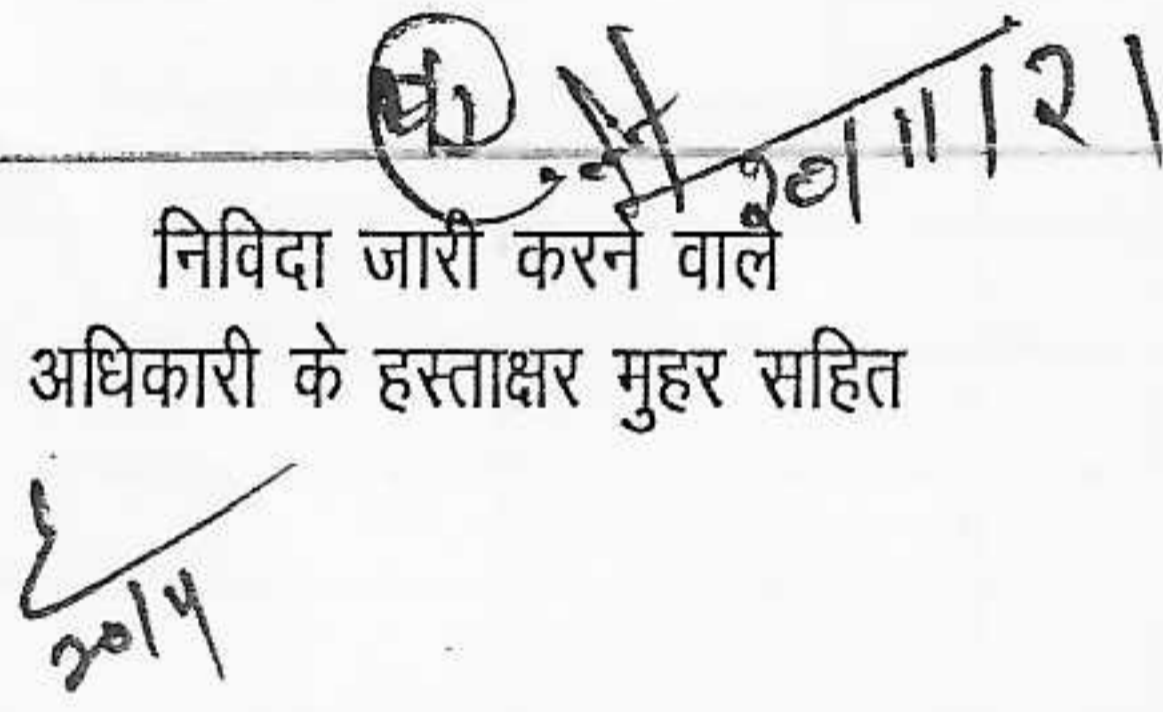 २०।११।२१
निविदा जारी करने वाले
अधिकारी के हस्ताक्षर मुहर सहित